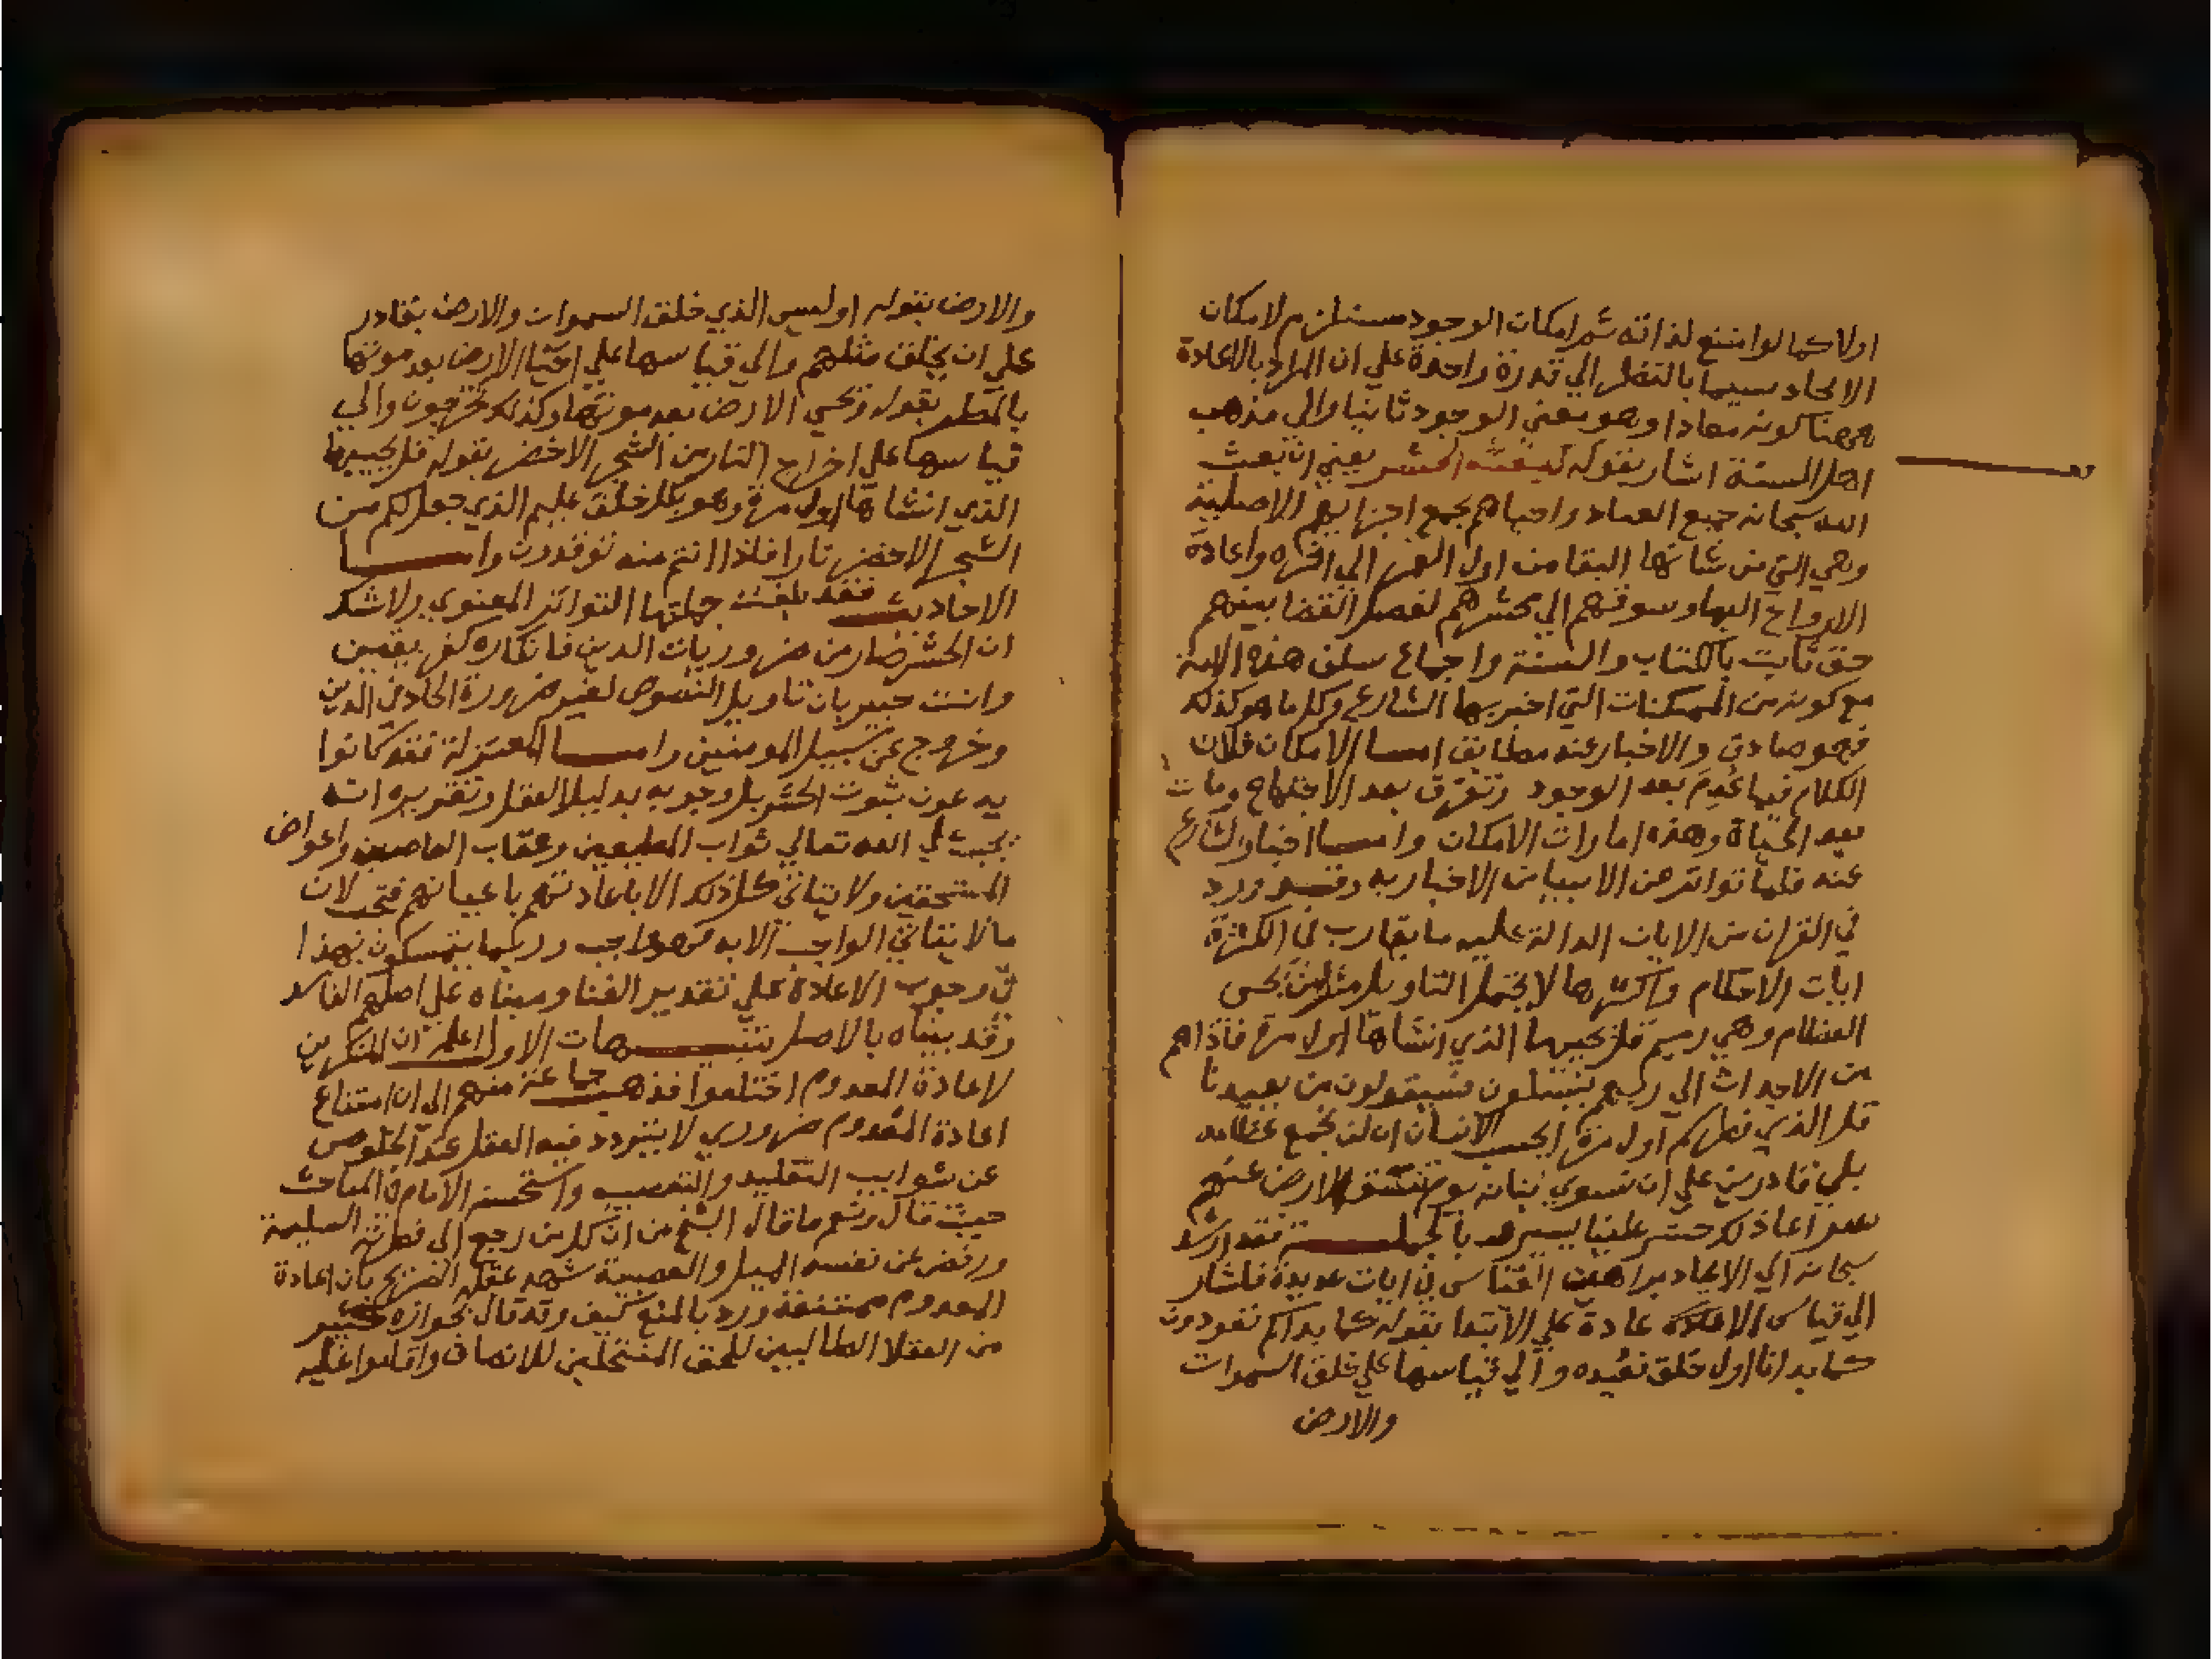 اولا كما لو امتنع لذاته ثم امكان الوجود مستلزم لامكان
الايجاد سيما بالنظر الي قدرة واحدة علي ان المراد بالاعادة
ههنا كونه معادا وهو معني الوجود ثانيا والي مذهب
اهل السنة اشار بقوله كبعثه الحشر يعني ان بعث
الله سبحانه جميع العباد واحياهم بجمع اجزايهم الاصلية
وهي التي من شانها البقا من اول العمر الي اخره واعادة
الارواح اليها وسوقهم الي محشرهم لفصل القضا بينهم
حق ثابت بالكتاب والسنة واجماع سلف هذه الامة
مع كونه من الممكنات التي اخبر بها الشارع وكل ما هو كذلك
فهو صادق والاخبار عنه مطابق اما الامكان فلان
الكلام فيما عدم بعد الوجود وتفرق بعد الاجتماع ومات
بعد الحياة وهذه امارات الامكان واما اخبار الشارع
عنه فلما تواتر عن الانبيا من الاخبار به وقد ورد
في القران من الايات الدالة عليه ما يقارب في الكثرة
ايات الاحكام واكثرها لا يحتمل التاويل مثل من يحي
العظام وهي رميم قل يحييها الذي انشاها اول مرة فاذا هم
من الاجداث الي ربهم ينسلون فسيقولون من يعيدنا
قل الذي فطركم اول مرة ايحسب الانسان ان لن نجمع عظامه
بلي قادرين علي ان نسوي بنانه يوم تشقق الارض عنهم
سراعا ذلك حشر علينا يسير وبالجملة فقد ارشد
سبحانه الي الايعاد ببراهين القياس في ايات عديدة فاشار
الي قياس الاعادة علي الابتدا بقوله كما بداكم تعودون
كما بدانا اول خلق نعيده والي قياسها علي خلق السموات
والارض
والارض بقوله اوليس الذي خلق السموات والارض بقادر
علي ان يخلق مثلهم والي قياسها علي احيا الارض بعد موتها
بالمطر بقوله ونحيي الارض بعد موتها وكذلك تخرجون والي
قياسها علي اخراج النار من الشجر الاخضر بقوله قل يحييها
الذي انشاها اول مرة وهو بكل خلق عليم الذي جعل لكم من
الشجر الاخضر نارا فاذا انتم منه توقدون واما
الاحاديث فقد بلغت جملتها التواتر المعنوي ولا شك
ان الحشر صار من ضروريات الدين فانكاره كفر بيقين
وانت خبير بان تاويل النصوص لغير ضرورة الحاد في الدين
وخروج عن سبيل المومنين واما المعتزلة فقد كانوا
يدعون ثبوت الحشر بل وجوبه بدليل العقل وتقريره انه
يجب علي الله تعالي ثواب المطيعين وعقاب العاصين واعواض
المستحقين ولا يتاتي كل ذلك الا باعادتهم باعيانهم فتجب لان
ما لا يتاتي الواجب الا به فهو واجب وربما يتمسكون بهذا
في وجوب الاعادة علي تقدير الفنا ومبناه علي اصلهم الفاسد
وقد بيناه بالاصل تنبيهات الاول اعلم ان المنكرين
لاعادة المعدوم اختلفوا فذهب جماعة منهم الي ان امتناع
اعادة المعدوم ضروري لا يتردد فيه العقل عند الخلوص
عن شوايب التقليد والتعصب واستحسنه الامام في المباحث
حيث قال ونعم ما قال الشيخ من ان كل من رجع الي فطرته السليمة
ورفض عن نفسه الميل والعصبية شهد عقله الصريح بان اعادة
المعدوم ممتنعة ورد بالمنع كيف وقد قال بجوازه كثير
من العقلا الطالبين للحق المنتحلين للانصاف واقاموا عليه